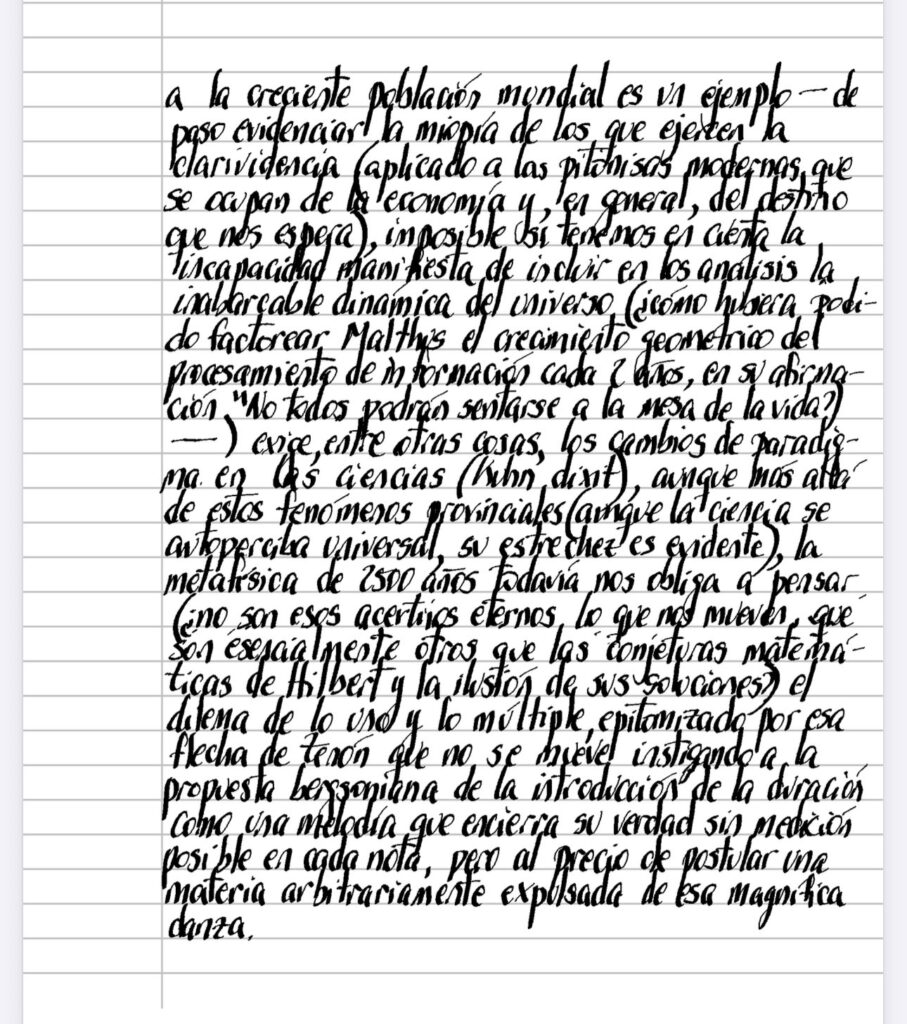 a la creciente población mundial es un ejemplo — de
paso evidenciar la miopía de los que ejercen la
clarividencia (aplicado a las pitonisas modernas que
se ocupan de la economía y, en general, del destino
que nos espera), imposible si tenemos en cuenta la
incapacidad manifiesta de incluir en los análisis la
inabarcable dinámica del universo (¿cómo hubiera podi-
do factorear Malthus el crecimiento geométrico del
procesamiento de información cada 2 años, en su afirma-
ción "No todos podrán sentarse a la mesa de la vida?)
—) exige, entre otras cosas, los cambios de paradig-
ma en las ciencias (Kuhn dixit), aunque más allá
de estos fenómenos provinciales (aunque la ciencia se
autoperciba universal, su estrechez es evidente), la
metafísica de 2500 años todavía nos obliga a pensar
(¿no son esos acertijos eternos lo que nos mueven, que
son esencialmente otros que las conjeturas matemá-
ticas de Hilbert y la ilusión de sus soluciones?) el
dilema de lo uno y lo múltiple, epitomizado por esa
flecha de Zenón que no se mueve instigando a la
propuesta bergsoniana de la introducción de la duración
como una melodía que encierra su verdad sin medición
posible en cada nota, pero al precio de postular una
materia arbitrariamente expulsada de esa magnífica
danza.